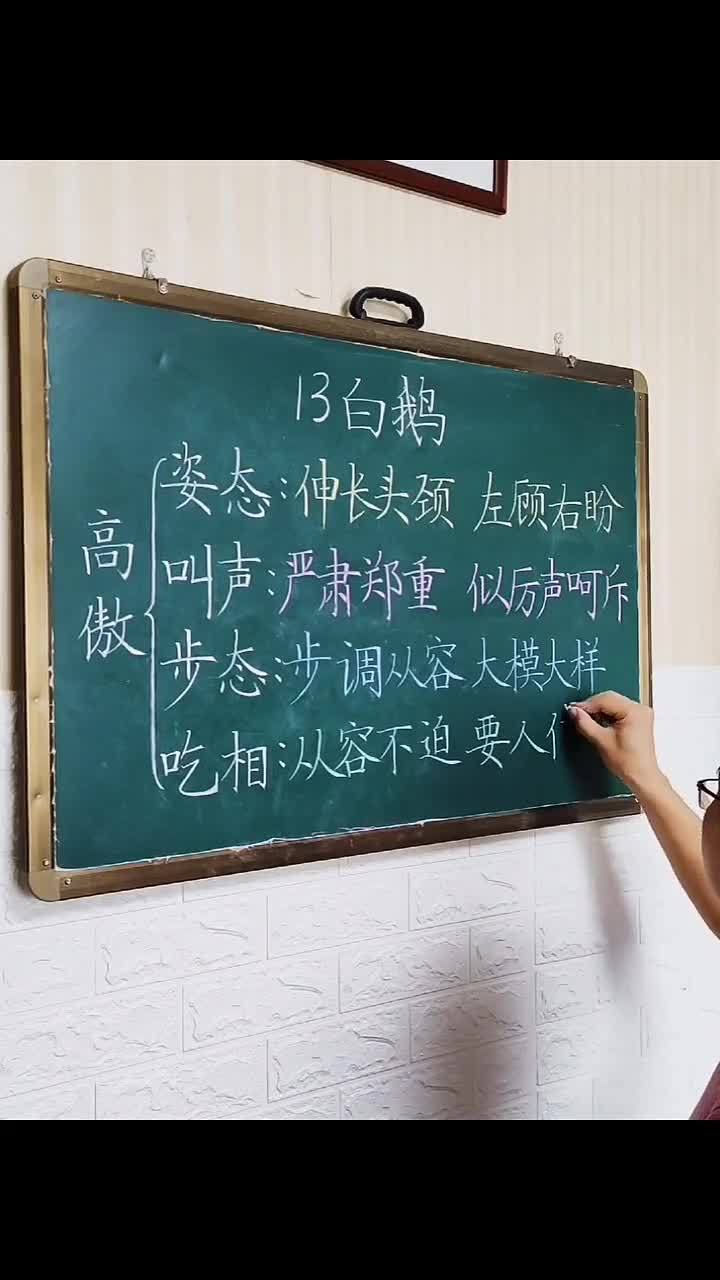 13白鹅
高傲
姿态:伸长头颈 左顾右盼
叫声:严肃郑重 似厉声呵斥
步态:步调从容 大模大样
吃相:从容不迫 要人